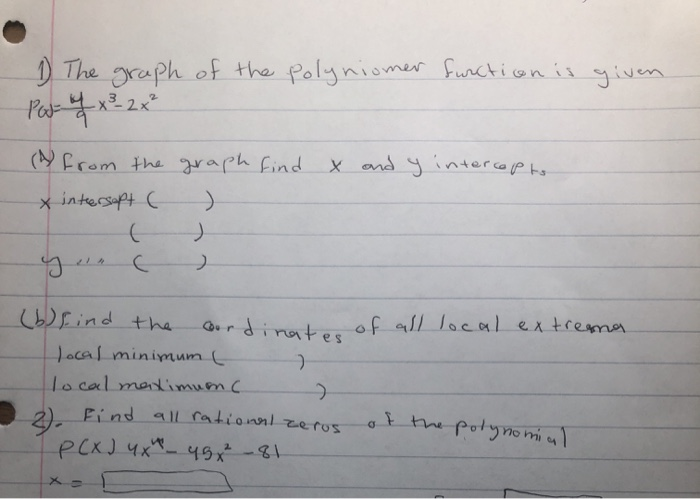 1) The graph of the polyniomer function is given
P(x)= 4/9 x³-2x²
(A) from the graph find x and y intercepts
x intersept ( )
( )
y "" ( )
(b) Find the cordinates of all local extrema
local minimum ( )
local maximum ( )
2). Find all rational zeros of the polynomial
P(x) 4x⁴- 45x² -81
x =